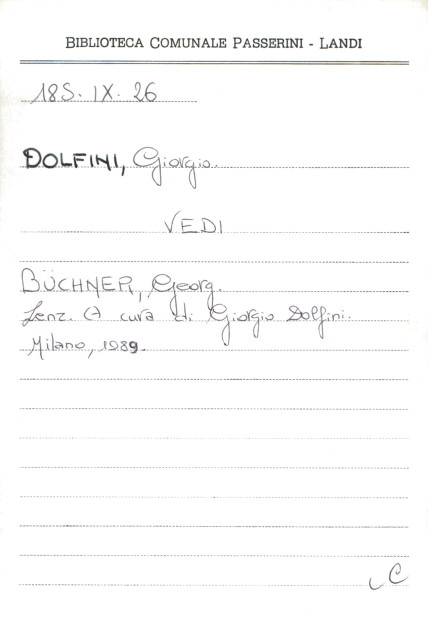 BIBLIOTECA COMUNALE PASSERINI - LANDI
18S. IX. 26
DOLFINI, Giorgio.
VEDI
BÜCHNER, Georg.
Lenz. A cura di Giorgio Dolfini.
Milano, 1989.
C